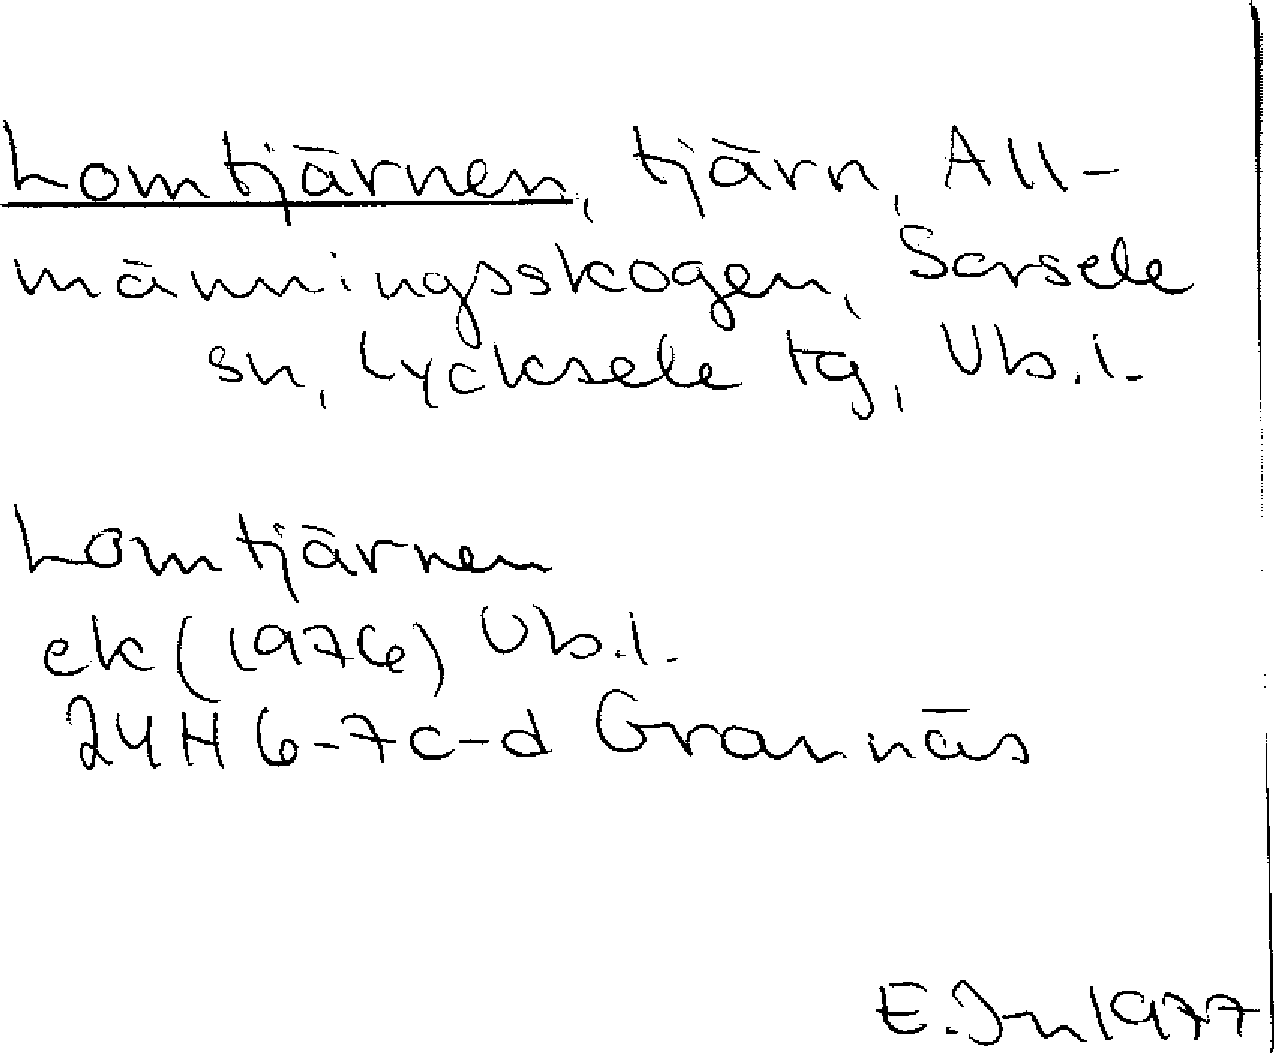 Lomtjärnen, tjärn, All-
männingsskogen, Sorsele
sn, Lycksele tg, Vb.l.
Lomtjärnen
ek (1976) Vb.l.
24H 6-7c-d Grannäs
E.Jn 1977